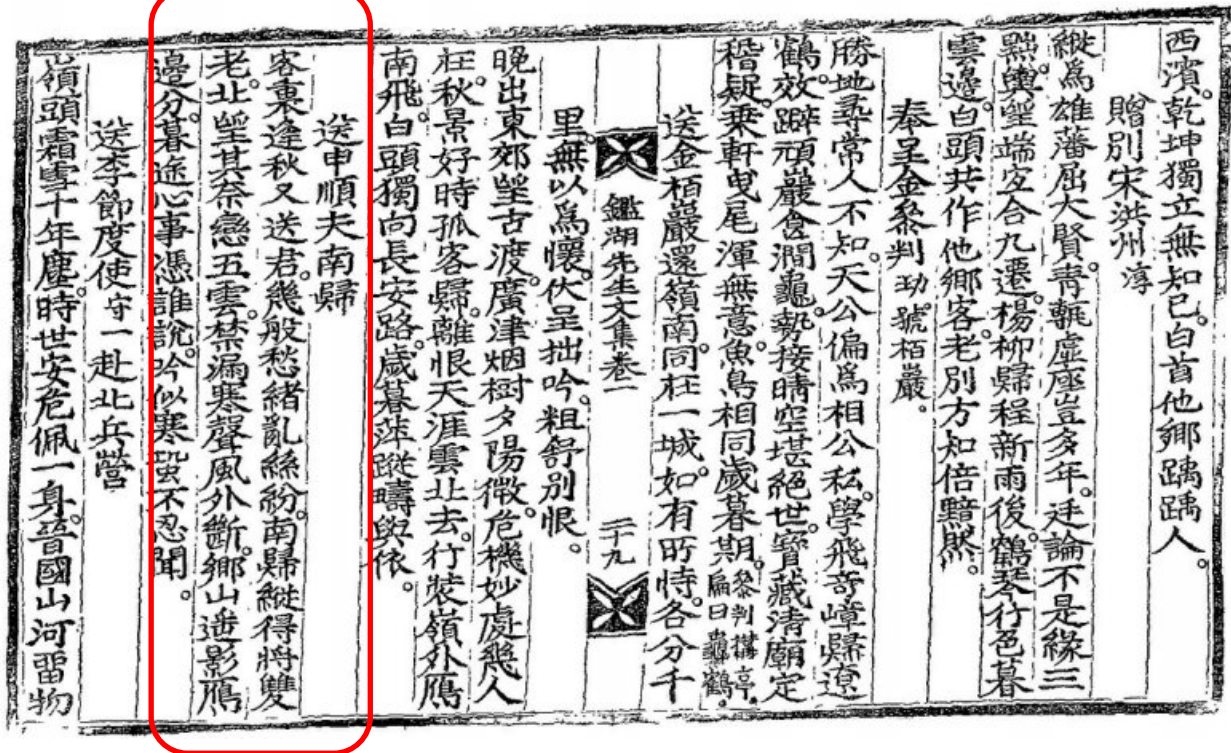 西濱。乾坤獨立無知己。白首他鄕踽踽人。
贈別宋洪州淳
縱爲雄藩屈大賢。靑氈虛座豈多年。廷論不是緣三
黜。輿望端宜合九遷。楊柳歸程新雨後。鶴琴行色暮
雲邊。白頭共作他鄕客。老別方知倍黯然。
奉呈金叅判玏號栢巖。
勝地尋常人不知。天公偏爲相公私。學飛奇嶂歸遼
鶴。效躃頑巖含澗龜。勢接晴空堪絶世。寶藏淸廟定
稽疑。乗軒曳尾渾無意。魚鳥相同歲暮期。叅判搆亭。扁曰龜鶴。
送金栢巖還嶺南。同在一城。如有所恃。各分千
鑑湖先生文集卷一 二十九
里。無以爲懷。伏呈拙吟。粗舒別恨。
晩出東郊望古渡。廣津烟樹夕陽微。危機妙處幾人
在。秋景好時孤客歸。離恨天涯雲北去。行裝嶺外鴈
南飛。白頭獨向長安路。歲暮萍蹤疇與依。
送申順夫南歸
客裏逢秋又送君。幾般愁緖亂絲紛。南歸縱得將雙
老。北望其奈戀五雲。禁漏寒聲風外斷。鄕山遥影鴈
邊分。暮途心事憑誰說。吟似寒蛩不忍聞。
送李節度使守一赴北兵營
嶺頭霜雪十年塵。時世安危佩一身。晉國山河畱物